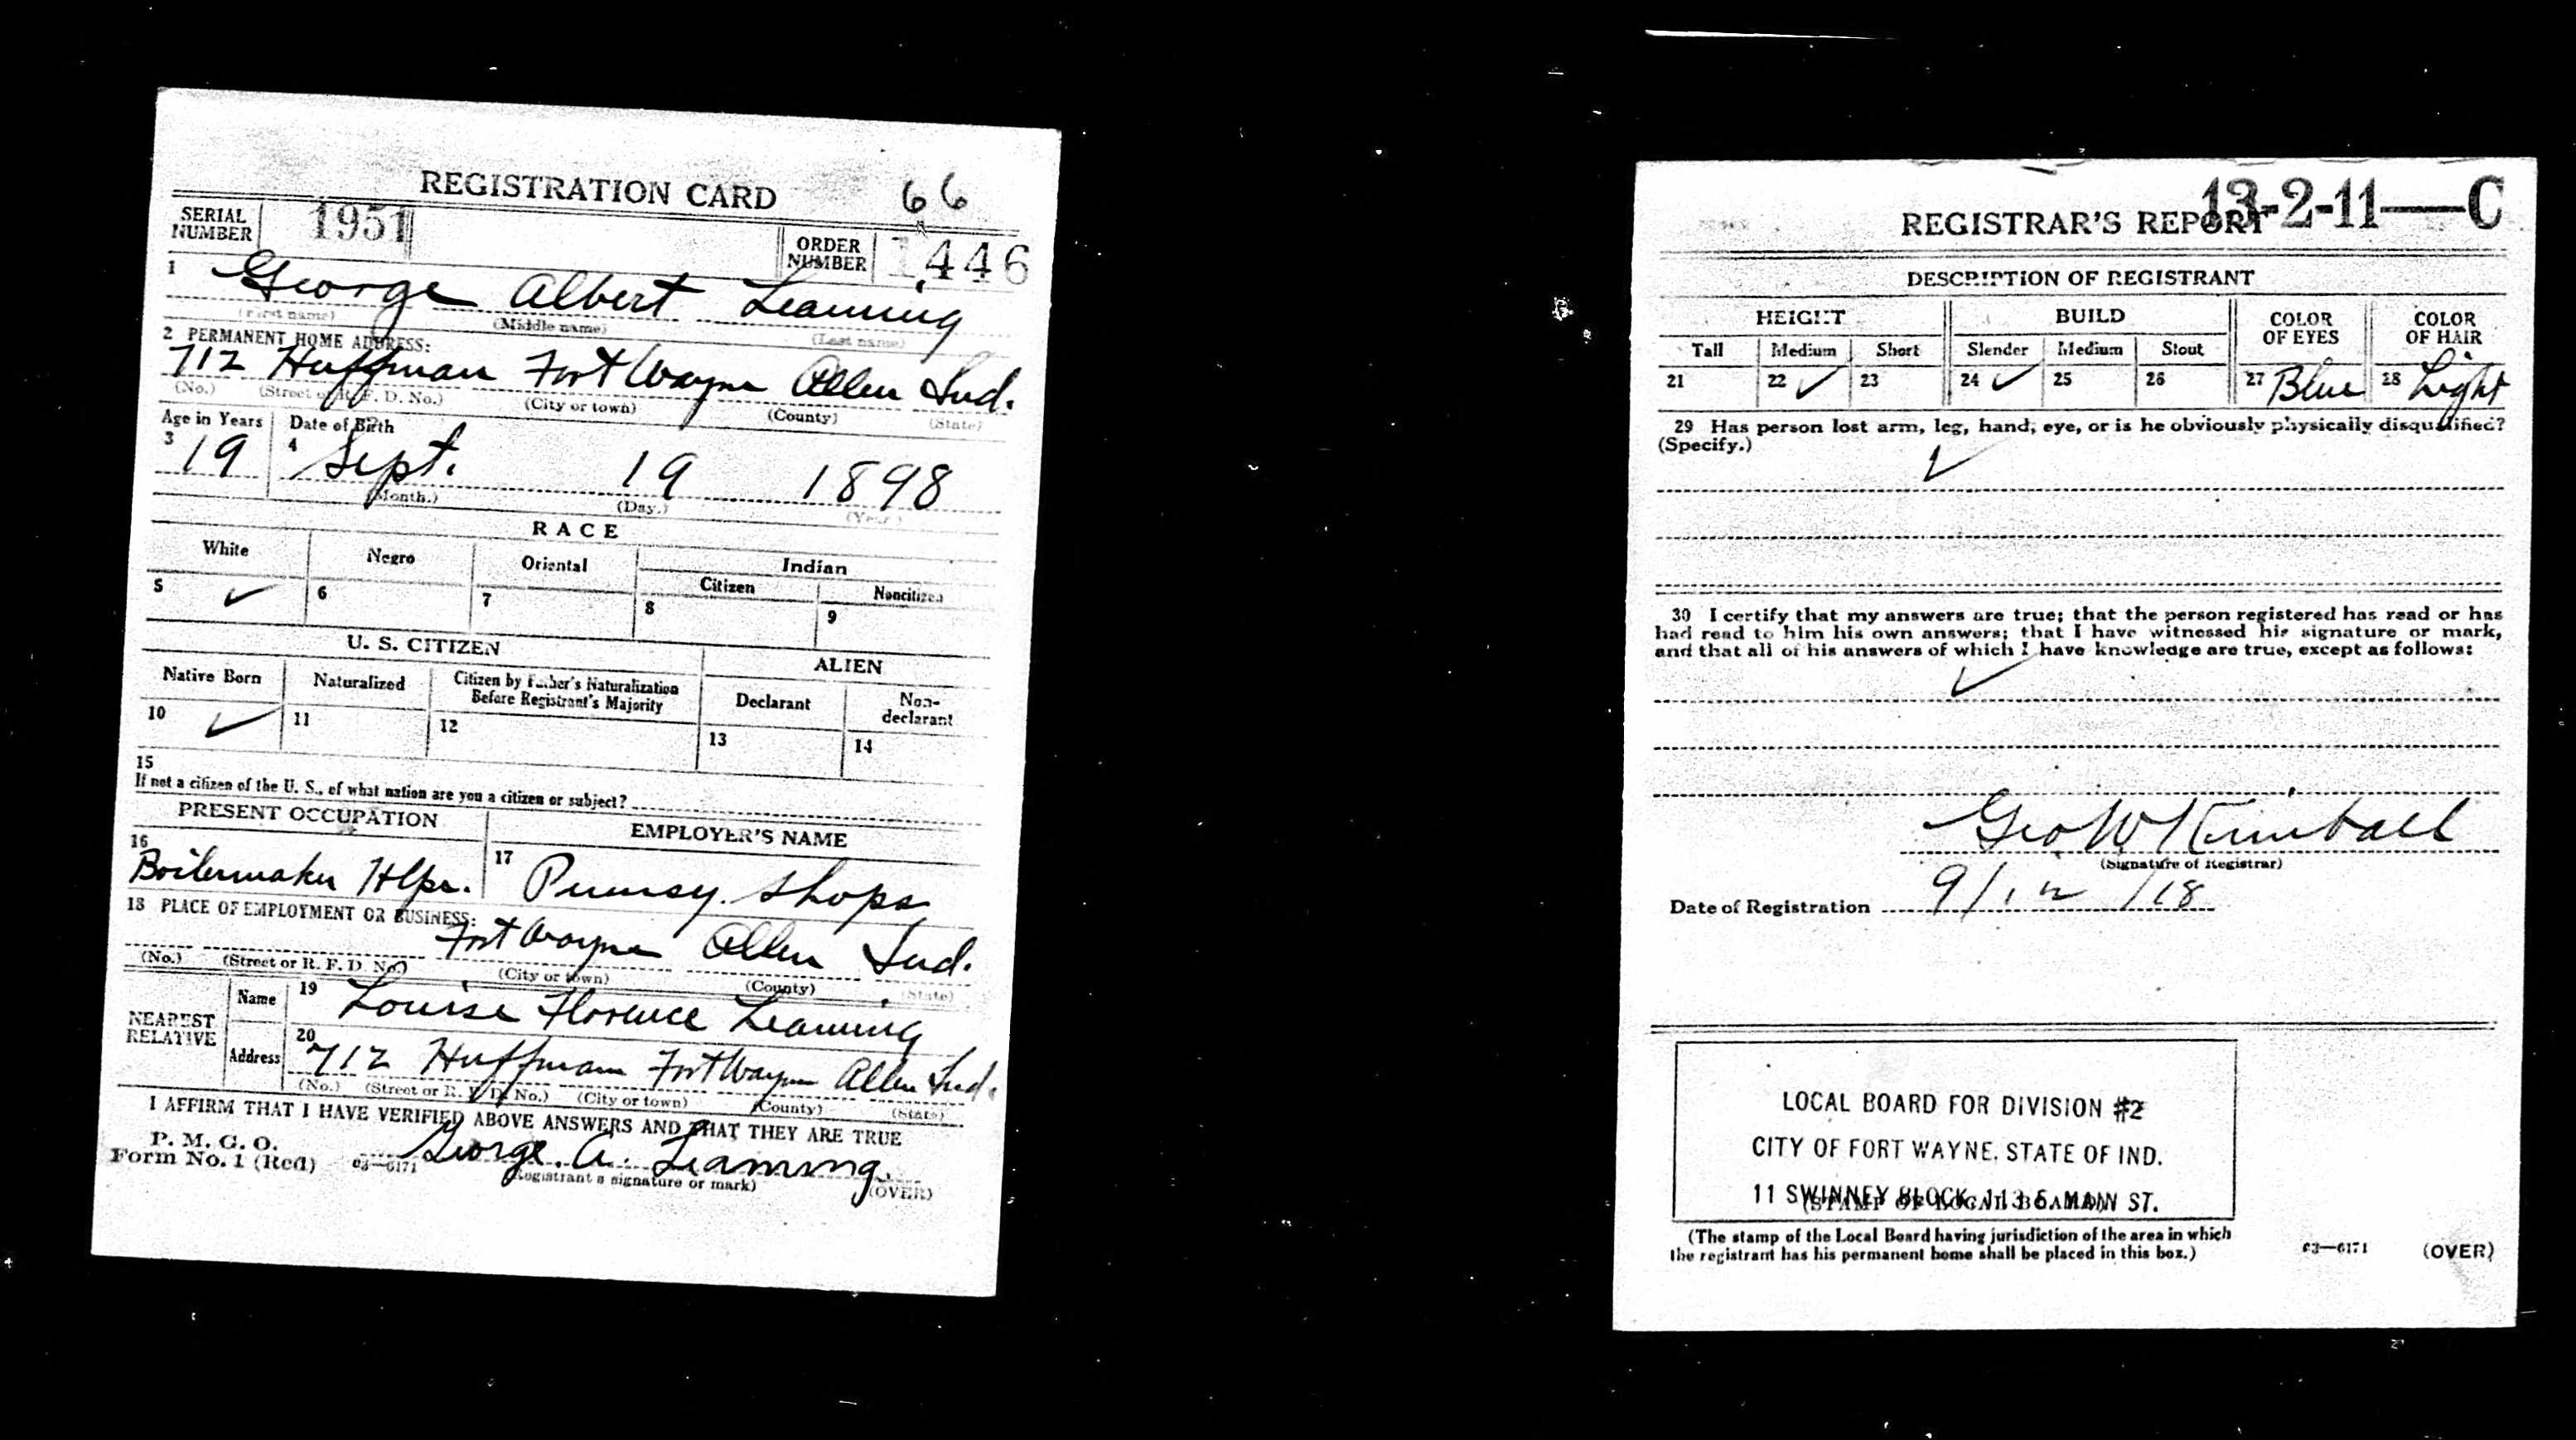 REGISTRATION CARD 66
SERIAL NUMBER 1951
ORDER NUMBER 1446
1 George Albert Leaming
(First name) (Middle name) (Last name)
2 PERMANENT HOME ADDRESS:
712 Huffman Fort Wayne Allen Ind.
(No.) (Street or R. F. D. No.) (City or town) (County) (State)
Age in Years Date of Birth
3 19 4 Sept. 19 1898
(Month.) (Day.) (Year.)
RACE
White Negro Oriental Indian
Citizen Noncitizen
5 ✓ 6 7 8 9
U. S. CITIZEN ALIEN
Native Born Naturalized Citizen by Father's Naturalization Before Registrant's Majority Declarant Non-declarant
10 ✓ 11 12 13 14
15
If not a citizen of the U. S., of what nation are you a citizen or subject?
PRESENT OCCUPATION EMPLOYER'S NAME
16 Boilermaker Hlpr. 17 Pennsy. Shops
18 PLACE OF EMPLOYMENT OR BUSINESS:
Fort Wayne Allen Ind.
(No.) (Street or R. F. D. No.) (City or town) (County) (State)
NEAREST RELATIVE
Name 19 Louise Florence Leaming
Address 20 712 Huffman Fort Wayne Allen Ind.
(No.) (Street or R. F. D. No.) (City or town) (County) (State)
I AFFIRM THAT I HAVE VERIFIED ABOVE ANSWERS AND THAT THEY ARE TRUE
P. M. G. O.
Form No. 1 (Red) 03—6171 George. A. Leaming.
(Registrant's signature or mark) (OVER)
13-2-11—C
REGISTRAR'S REPORT
DESCRIPTION OF REGISTRANT
HEIGHT BUILD COLOR OF EYES COLOR OF HAIR
Tall Medium Short Slender Medium Stout
21 22 ✓ 23 24 ✓ 25 26 27 Blue 28 Light
29 Has person lost arm, leg, hand, eye, or is he obviously physically disqualified?
(Specify.)
✓
30 I certify that my answers are true; that the person registered has read or has
had read to him his own answers; that I have witnessed his signature or mark,
and that all of his answers of which I have knowledge are true, except as follows:
✓
Geo W Kimball
(Signature of Registrar)
Date of Registration 9/12/18
LOCAL BOARD FOR DIVISION #2
CITY OF FORT WAYNE, STATE OF IND.
11 SWINNEY BLOCK, 113 E. MAIN ST.
(STAMP OF LOCAL BOARD)
(The stamp of the Local Board having jurisdiction of the area in which
the registrant has his permanent home shall be placed in this box.)
03—6171 (OVER)